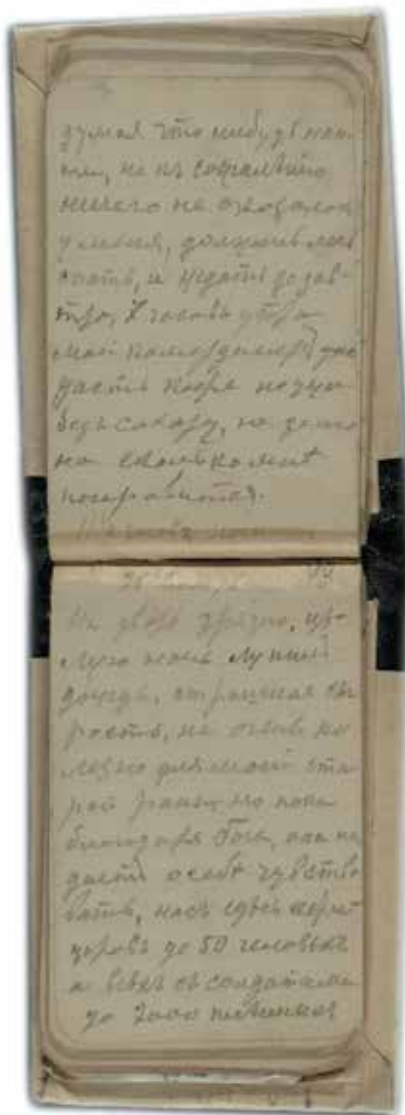 думая что нибудь най-
ти, но къ сожалѣнію
ничего не оказалось
у меня, должен
спать, и ждать до зав-
тра, 7 часовъ утра
мой
дастъ кофе
безъ сахару, но
на сколько мнѣ
понравится.
На дворѣ грязно, цѣ-
лую ночь лупил
дождь, страшная сы-
рость, не очень по
лезно для моей ста-
рой раны, но пока
благодаря Бога, она не
даетъ особо чувство
вать, насъ здѣсь офи
церовъ до 50 человѣкъ
а всѣхъ съ солдатами
до 2000 плѣнныхъ